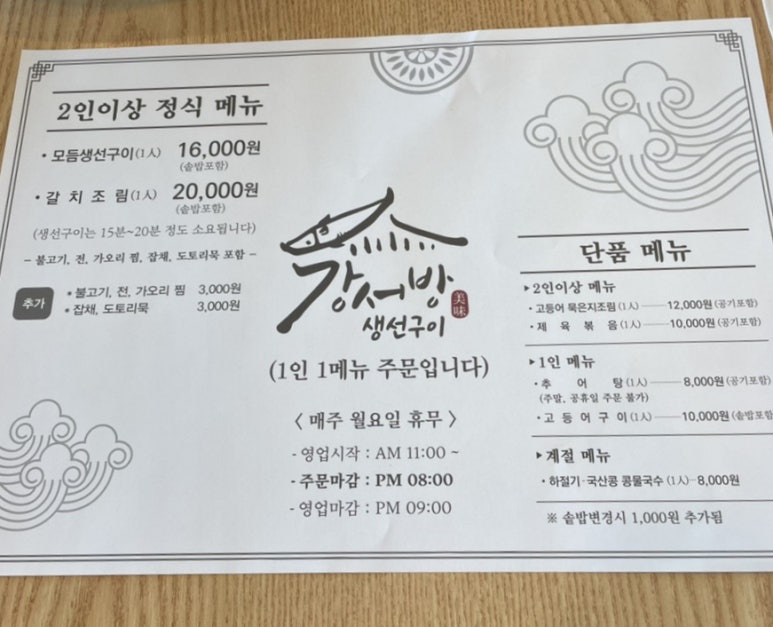 2인이상 정식 메뉴
• 모듬생선구이(1人) 16,000원
(솥밥포함)
• 갈 치 조 림(1人) 20,000원
(솥밥포함)
(생선구이는 15분~20분 정도 소요됩니다)
- 불고기, 전, 가오리 찜, 잡채, 도토리묵 포함 -
추가
• 불고기, 전, 가오리 찜 3,000원
• 잡채, 도토리묵 3,000원
강서방
美味
생선구이
(1인 1메뉴 주문입니다)
〈 매주 월요일 휴무 〉
- 영업시작 : AM 11:00 ~
- 주문마감 : PM 08:00
- 영업마감 : PM 09:00
단품 메뉴
▸2인이상 메뉴
• 고등어 묵은지조림(1人) 12,000원(공기포함)
• 제 육 볶 음(1人) 10,000원(공기포함)
▸1인 메뉴
• 추 어 탕(1人) 8,000원(공기포함)
(주말, 공휴일 주문 불가)
• 고 등 어 구 이(1人) 10,000원(솥밥포함
▸계절 메뉴
• 하절기·국산콩 콩물국수(1人) 8,000원
※ 솥밥변경시 1,000원 추가됨